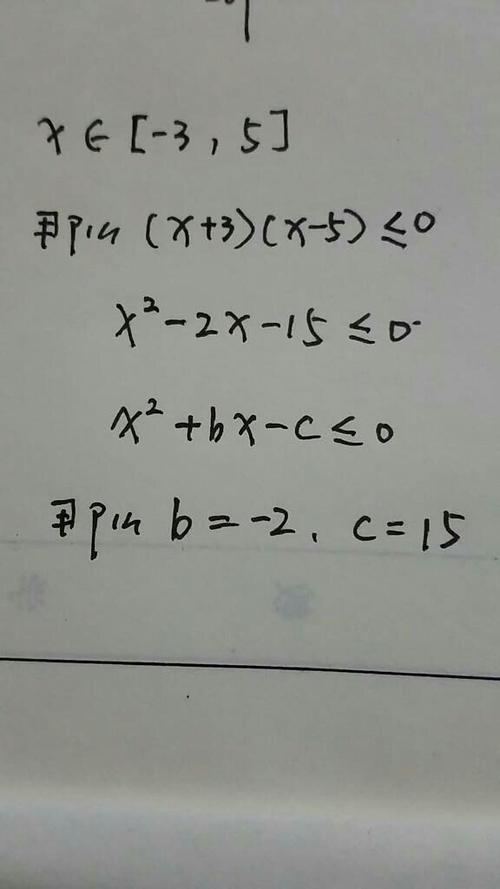 x ∈ [-3, 5]
所以 (x+3)(x-5) ≤ 0
x² - 2x - 15 ≤ 0
x² + bx - c ≤ 0
所以 b = -2, c = 15